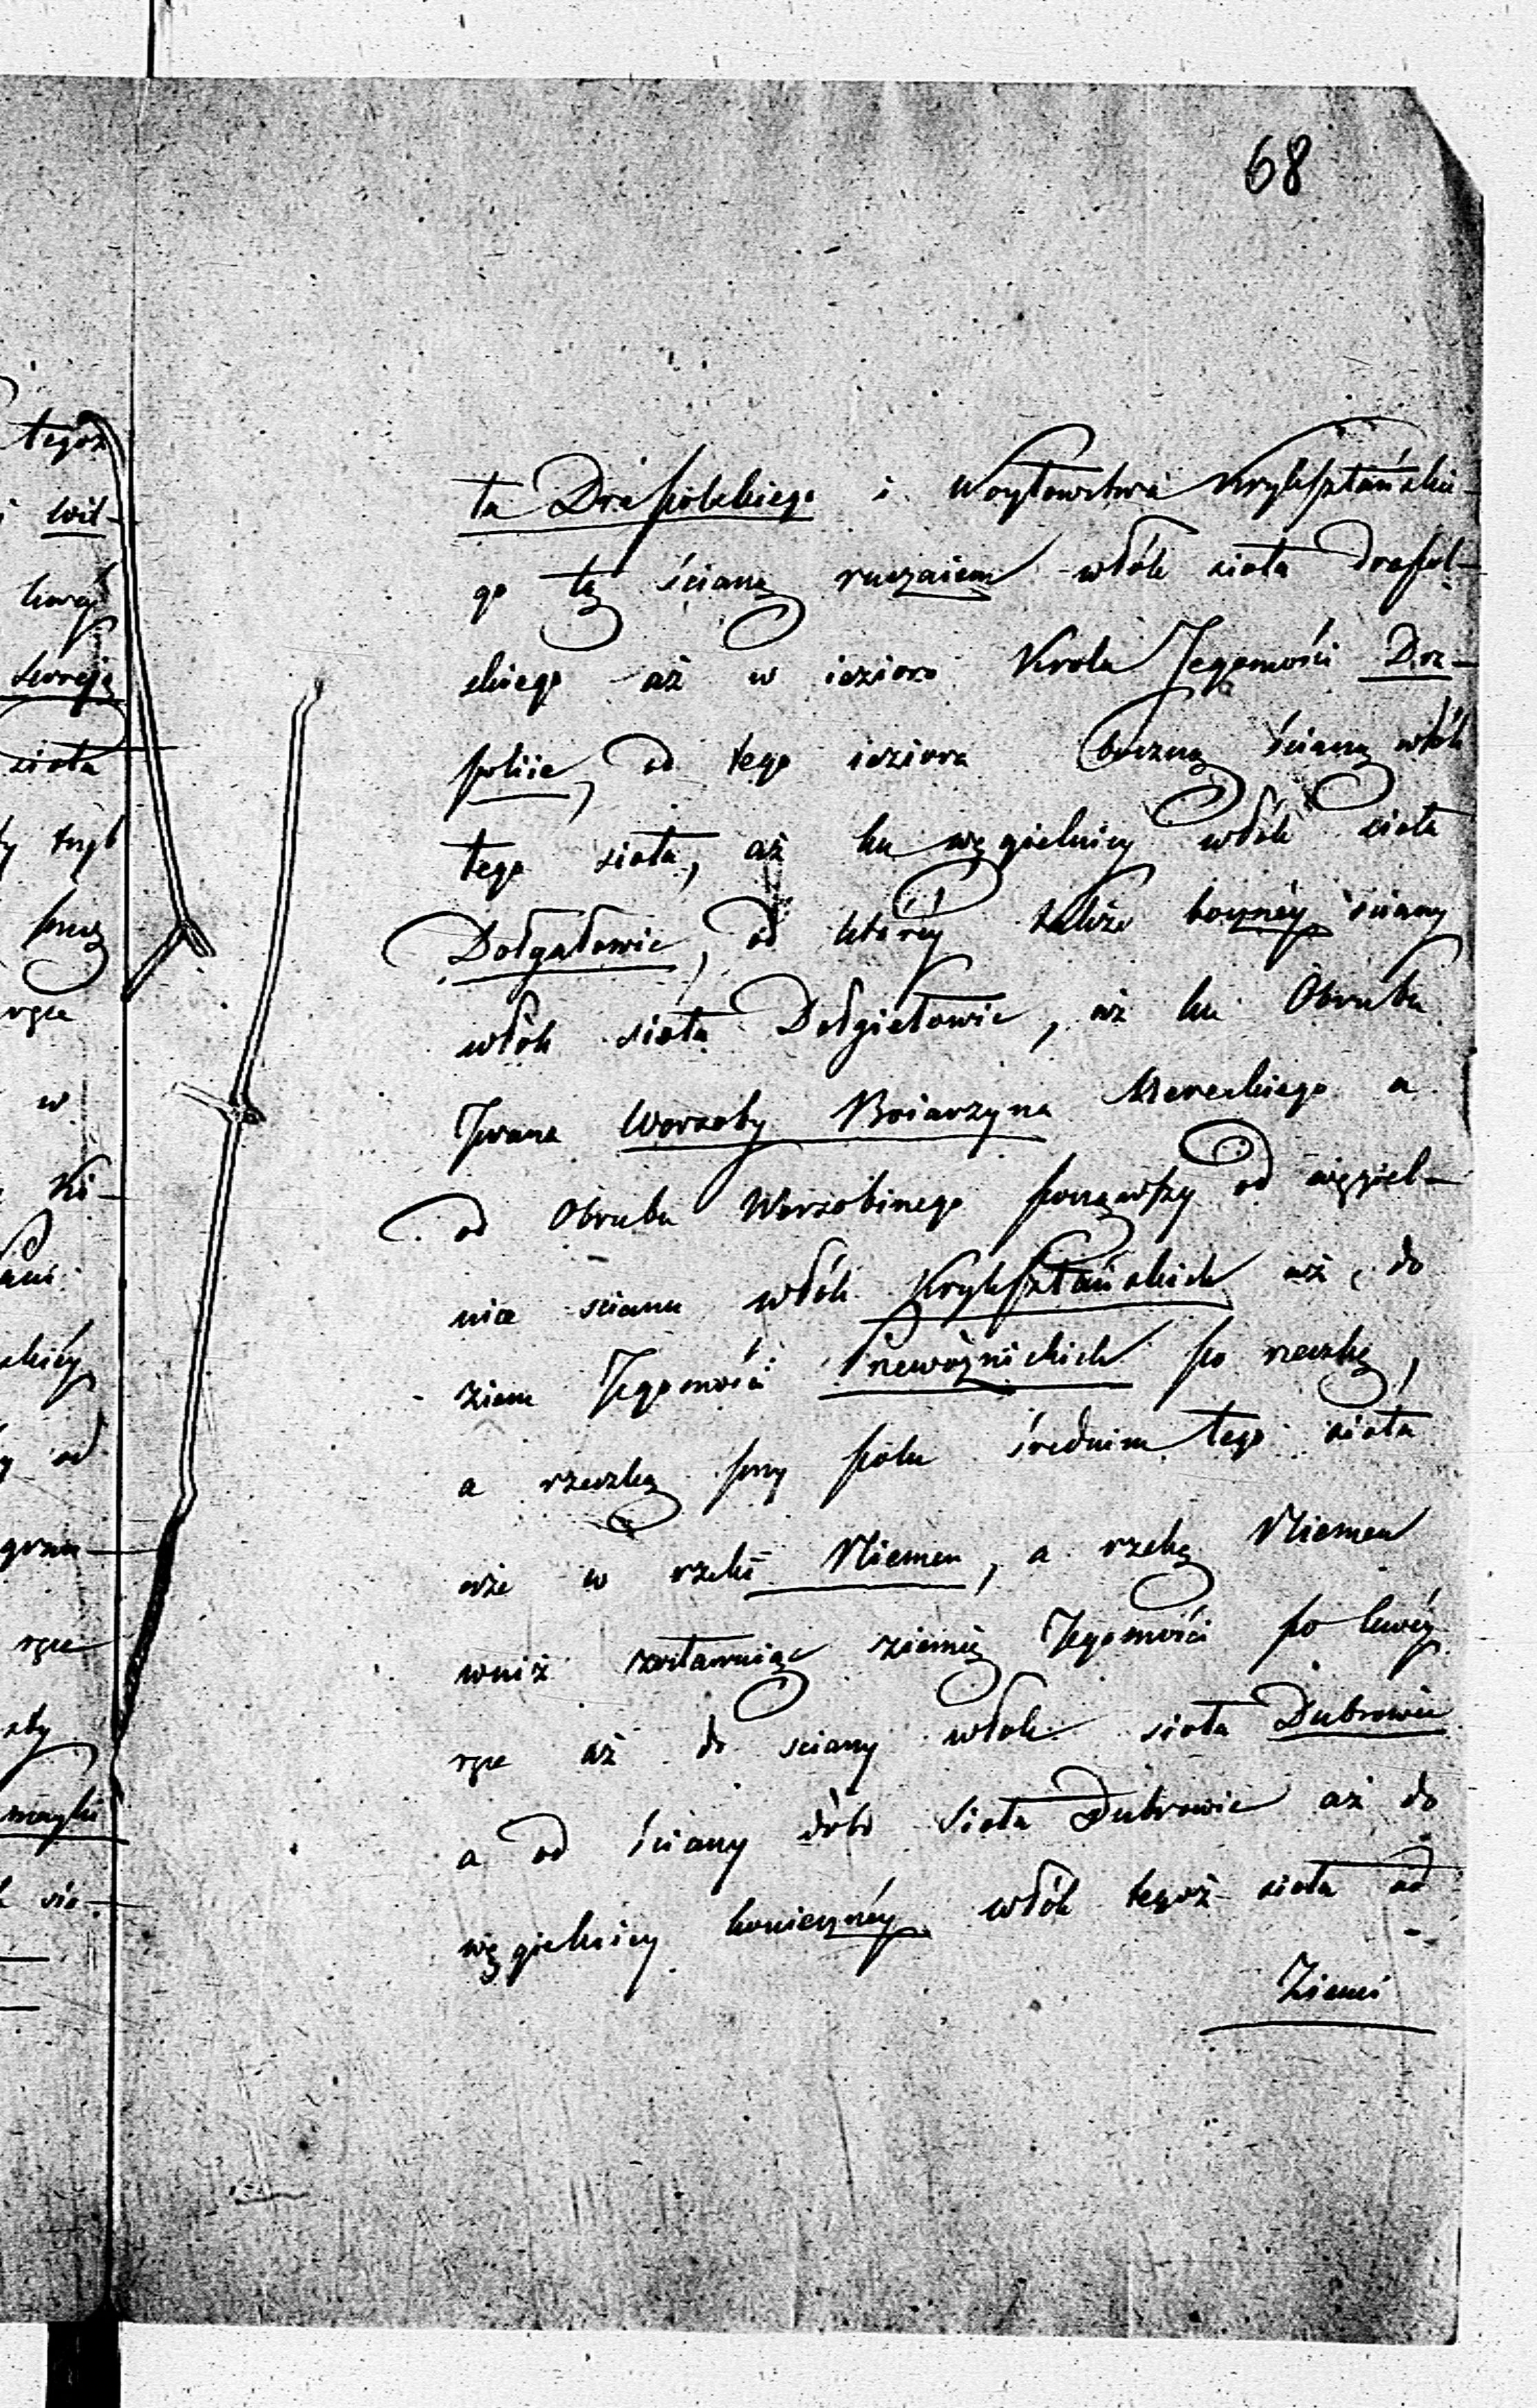 68
tegoż
wil-
sioła
tryb
przez
ręce
w
Ki-
od
ręce
ła Drapolskiego i Woytowstwa Krykſztańskie-
go tą ścianą ruczaiem włók sioła drapol-
skiego aż w iezioro Krola Jegomości Dra-
polije, od tego ieziora boczną ścianą włók
tego sioła, aż ku węgielnicy włók sioła
Dołgałowic, od któréy także boczney ściany
włók sioła Dołgiełowic, aż ku Obrubu
Jwana Worzoby Boiarzyna Mereckiego a
od Obrubu Worzobinego począwſzy od węgiel-
nice sciany włók Krykſztańskich aż do
ziem Jegomości Przewoźnickich po rzeczkę,
a rzeczką przy polu średnim tego sioła
aże w rzekę Niemen, a rzeką Niemen
wniż zostawuiąc ziemię Jegomości po lewéy
ręce aż do sciany włok sioła Dubrowic
a od ściany sioła Dubrowic aż do
węgielnicy koniecznéy włók tegoż sioła od
Ziemi